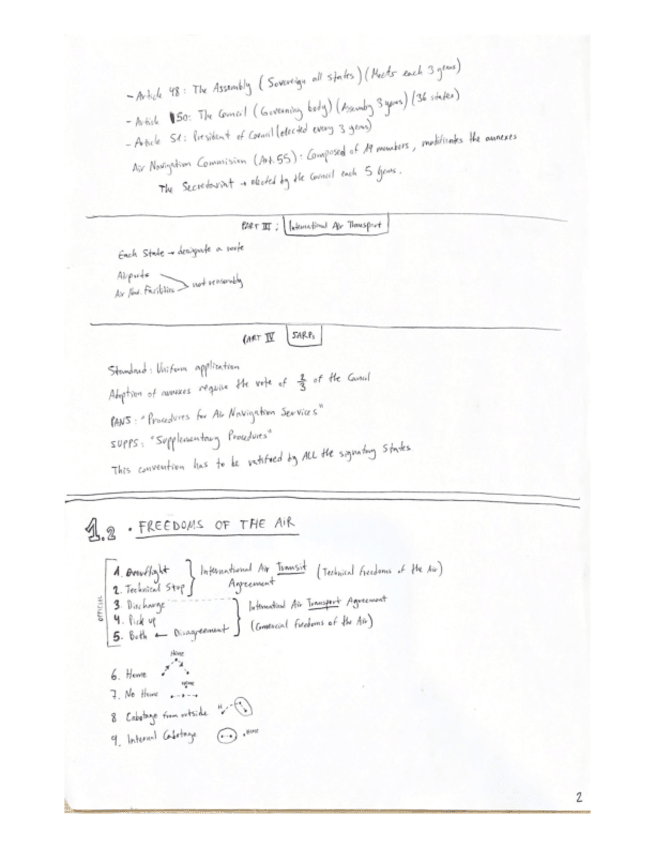 - Article 48: The Assembly (Sovereign all states) (Meets each 3 years)
- Article 50: The Council (Governing body) (Assemby 3 years) (36 states)
- Article 51: President of Council (elected every 3 years)
Air Navigation Commision (Art.55): Comprised of 19 members, modificates the annexes
The Secretariat → elected by the Council each 5 years.
PART III: International Air Transport
Each State → designate a route
Airports
Air Nav. Facilities
not reasonably
PART IV SARPs
Standard: Uniform application
Adoption of annexes require the vote of 2/3 of the Council
PANS: "Procedures for Air Navigation Services"
SUPPS: "Supplementary Procedures"
This convention has to be ratified by ALL the signatory States.
1.2 · FREEDOMS OF THE AIR
OFFICIAL
1. Overflight
2. Technical Stop
International Air Transit Agreement (Technical Freedoms of the Air)
3. Discharge
4. Pick up
5. Both ← Disagreement
International Air Transport Agreement
(Comercial Freedoms of the Air)
6. Home
HOME
7. No Home
HOME
8 Cabotage from outside
H
9. Internal Cabotage
HOME
2